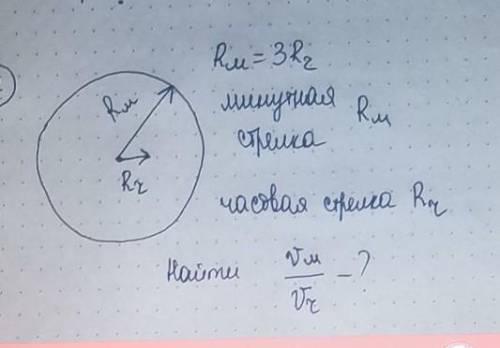 Rм = 3Rч
Rм
минутная Rм
стрелка
Rч
часовая стрелка Rч
Найти vм/vч - ?